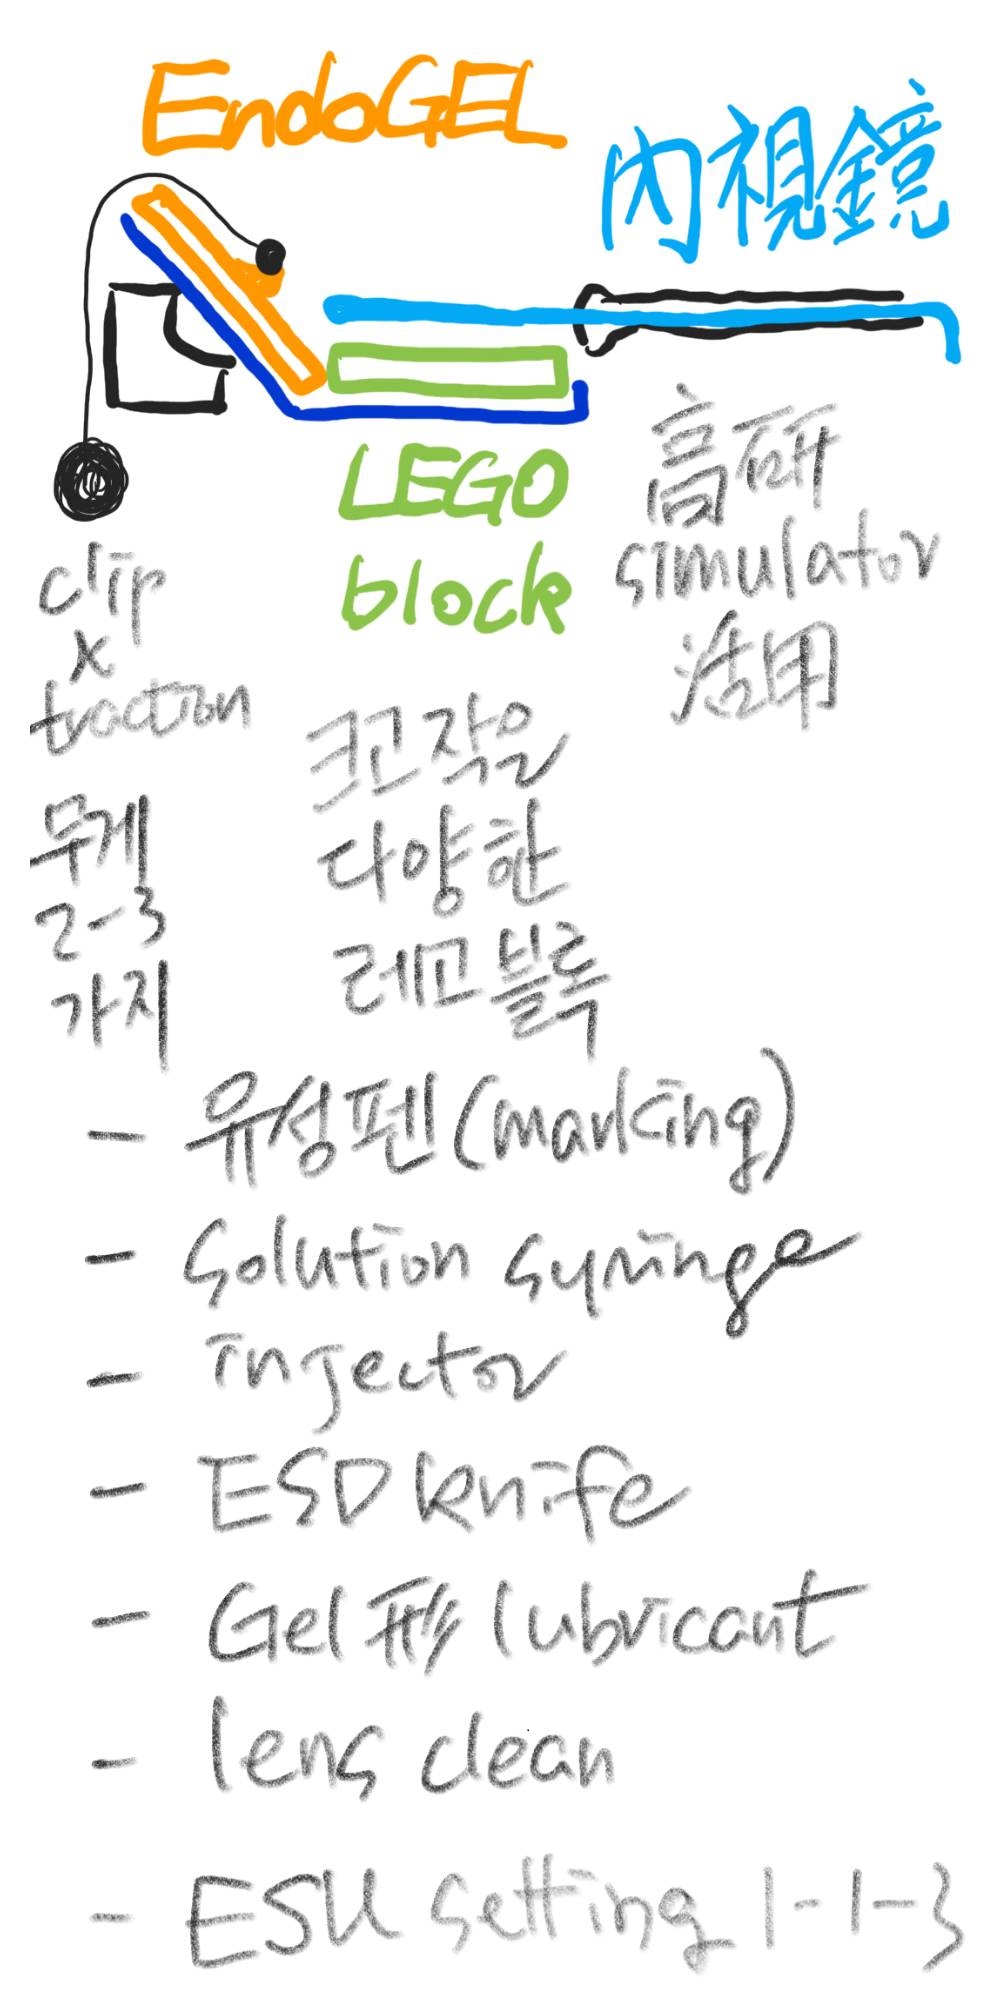 EndoGEL
內視鏡
LEGO
block
高研
simulator
活用
clip
x
traction
무게
2-3
가지
크고 작은
다양한
레고 블록
- 유성펜 (marking)
- Solution syringe
- injector
- ESD knife
- Gel 形 lubricant
- lens clean
- ESU setting 1-1-3